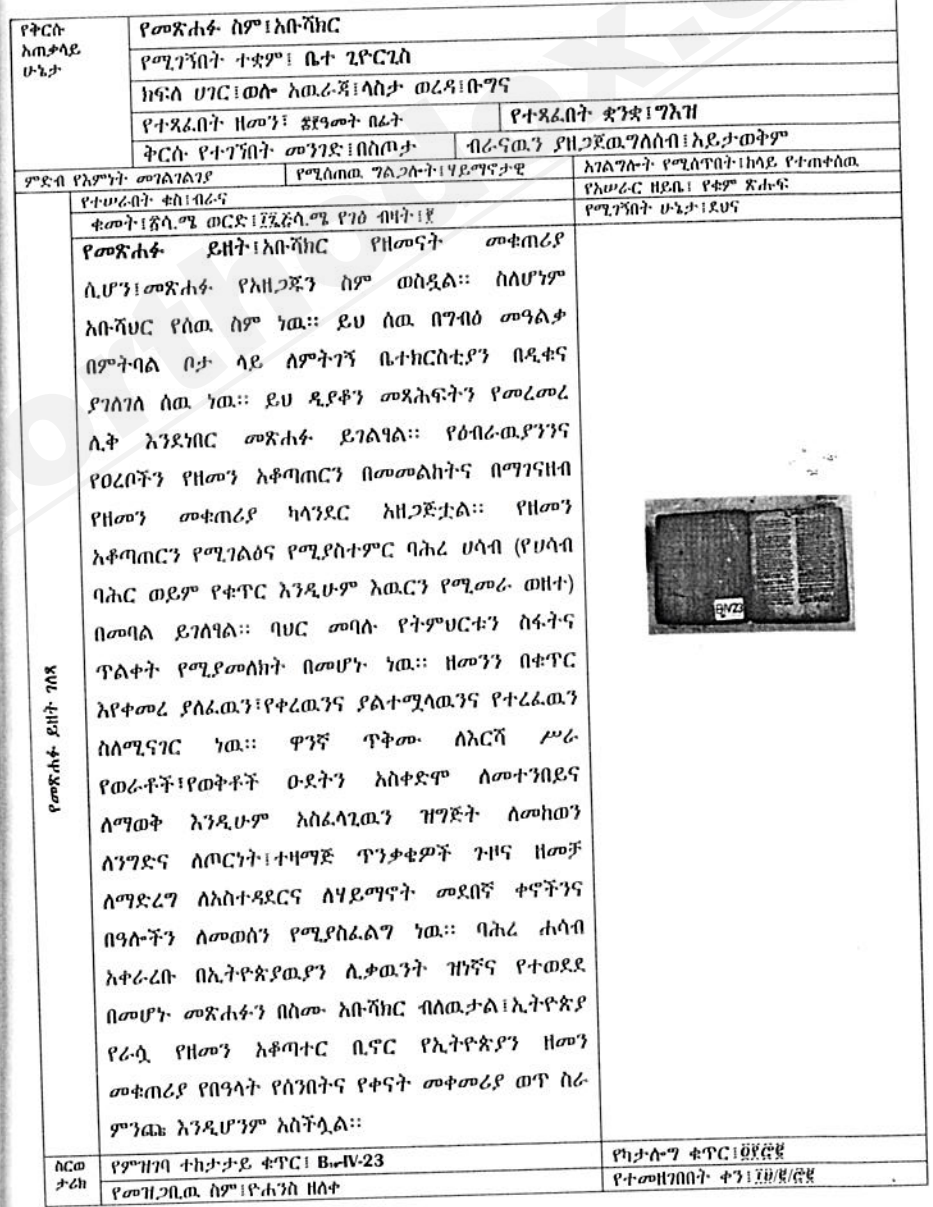 የቅርሱ
አጠቃላይ
ሁኔታ
የመጽሐፉ ስም፤አቡሻክር
የሚገኝበት ተቋም፤ ቤተ ጊዮርጊስ
ክፍለ ሀገር፤ወሎ አዉራጃ፤ላስታ ወረዳ፤ቡግና
የተጻፈበት ዘመን፣ ፷፻ዓመት በፊት የተጻፈበት ቋንቋ፤ግእዝ
ቅርሱ የተገኘበት መንገድ፤በስጦታ ብራናዉን ያዘጋጀዉግለሰብ፤አይታወቅም
ምድብ የእምነት መገልገልገያ የሚሰጠዉ ግልጋሎት፤ሃይማኖታዊ አገልግሎት የሚሰጥበት፤ከላይ የተጠቀሰዉ
የተሠራበት ቁስ፤ብራና የአሠራር ዘይቤ፤ የቁም ጽሑፍ
ቁመት፤ ወርድ፤ የገፅ ብዛት፤ የሚገኝበት ሁኔታ፤ደህና
የመጽሐፉ ይዘት፤አቡሻክር የዘመናት መቁጠሪያ
ሲሆን፤መጽሐፉ የአዘጋጁን ስም ወስዷል። ስለሆነም
አቡሻህር የሰዉ ስም ነዉ። ይህ ሰዉ በግብፅ መዓልቃ
በምትባል ቦታ ላይ ለምትገኝ ቤተክርስቲያን በዲቁና
ያገለገለ ሰዉ ነዉ። ይህ ዲያቆን መጻሕፍትን የመረመረ
ሊቅ እንደነበር መጽሐፉ ይገልፃል። የዕብራዉያንንና
የዐረቦችን የዘመን አቆጣጠርን በመመልከትና በማገናዘብ
የዘመን መቁጠሪያ ካላንደር አዘጋጅቷል። የዘመን
አቆጣጠርን የሚገልፅና የሚያስተምር ባሕረ ሀሳብ (የሀሳብ
ባሕር ወይም የቁጥር እንዲሁም እዉርን የሚመራ ወዘተ)
በመባል ይገለፃል። ባህር መባሉ የትምህርቱን ስፋትና
ጥልቀት የሚያመለክት በመሆኑ ነዉ። ዘመንን በቁጥር
እየቀመረ ያለፈዉን፣የቀረዉንና ያልተሟላዉንና የተረፈዉን
ስለሚናገር ነዉ። ዋንኛ ጥቅሙ ለእርሻ ሥራ
የወራቶች፣የወቅቶች ዑደትን አስቀድሞ ለመተንበይና
ለማወቅ እንዲሁም አስፈላጊዉን ዝግጅት ለመከወን
ለንግድና ለጦርነት፤ተዛማጅ ጥንቃቄዎች ጉዞና ዘመቻ
ለማድረግ ለአስተዳደርና ለሃይማኖት መደበኛ ቀኖችንና
በዓሎችን ለመወሰን የሚያስፈልግ ነዉ። ባሕረ ሐሳብ
አቀራረቡ በኢትዮጵያዉያን ሊቃዉንት ዝነኛና የተወደደ
በመሆኑ መጽሐፉን በስሙ አቡሻክር ብለዉታል፤ኢትዮጵያ
የራሷ የዘመን አቆጣተር ቢኖር የኢትዮጵያን ዘመን
መቁጠሪያ የበዓላት የሰንበትና የቀናት መቀመሪያ ወጥ ስራ
ምንጩ እንዲሆንም አስችሏል።
የመጽሐፉ ይዘት ገለጻ
BIV23
ስርወ
ታሪክ
የምዝገባ ተከታታይ ቁጥር፤ B-IV-23 የካታሎግ ቁጥር፤
የመዝጋቢዉ ስም፤ዮሐንስ ዘለቀ የተመዘገበበት ቀን፤
orthodox.